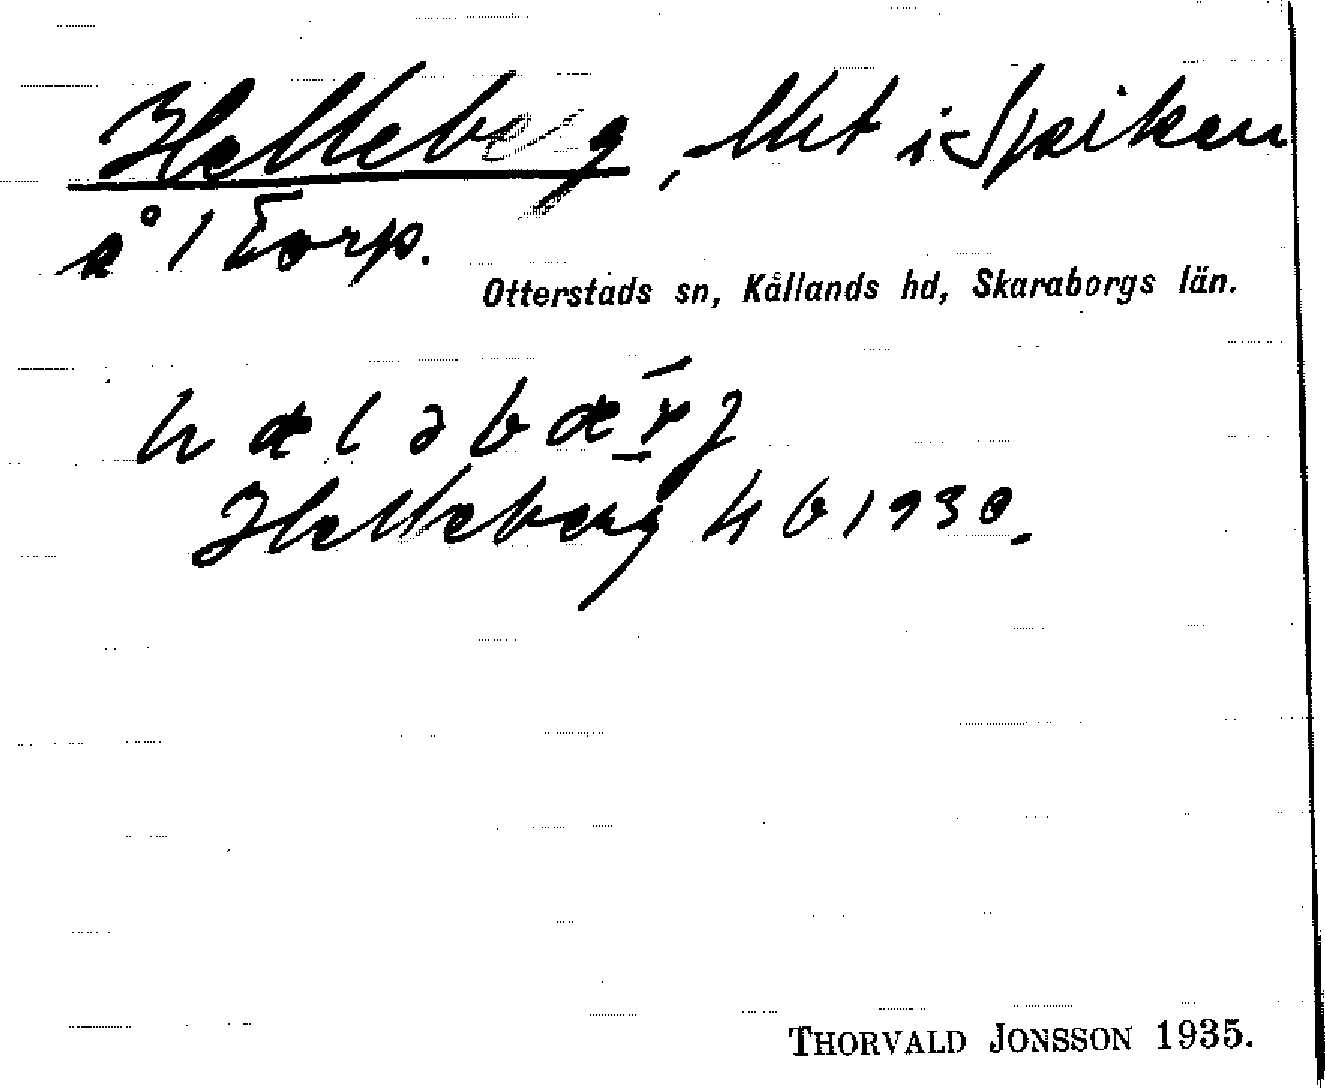 Helleberg, lht i Spiken
å 1 Torp.
Otterstads sn, Kållands hd, Skaraborgs län.
hæləbær̄j
Helleberg Hb 1930.
THORVALD JONSSON 1935.